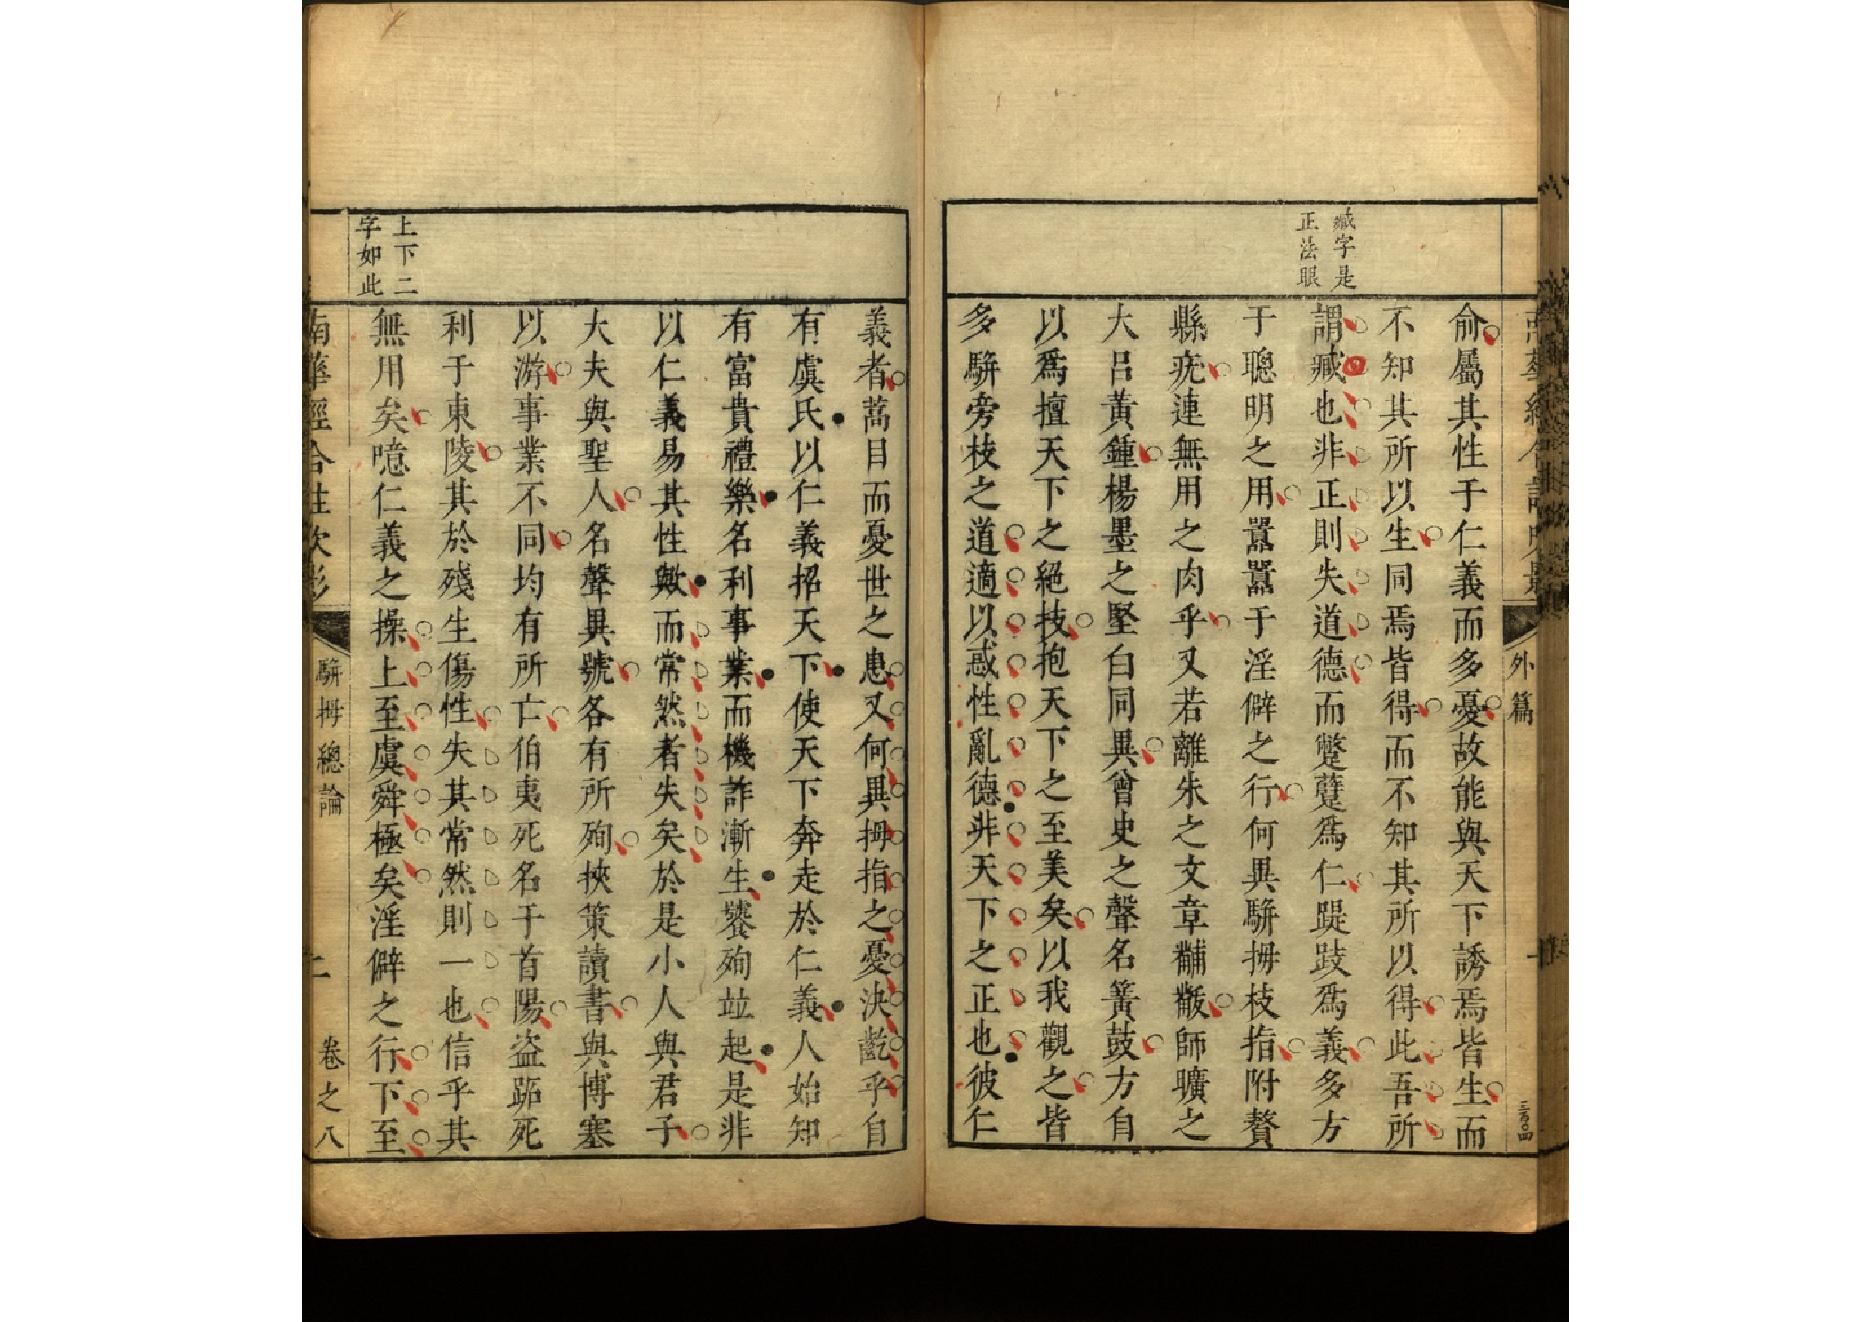 外篇
臧字是
正法眼
俞屬其性于仁義而多憂故能與天下誘焉皆生而
不知其所以生同焉皆得而不知其所以得此吾所
謂臧也非正則失道德而蹩躠爲仁踶跂爲義多方
于聰明之用囂囂于淫僻之行何異駢拇枝指附贅
縣疣連無用之肉乎又若離朱之文章黼黻師曠之
大呂黃鍾楊墨之堅白同異曾史之聲名簧鼓方自
以爲擅天下之絕技抱天下之至美矣以我觀之皆
多駢旁枝之道適以惑性亂德非天下之正也彼仁
義者蒿目而憂世之患又何異拇指之憂決齕乎自
有虞氏以仁義招天下使天下奔走於仁義人始知
有富貴禮樂名利事業而機詐漸生饕殉竝起是非
以仁義易其性歟而常然者失矣於是小人與君子
大夫與聖人名聲異號各有所殉挾策讀書與博塞
以游事業不同均有所亡伯夷死名于首陽盜跖死
利于東陵其於殘生傷性失其常然則一也信乎其
無用矣噫仁義之操上至虞舜極矣淫僻之行下至
上下二
字如此
南華經合註吹影
駢拇總論
二
卷之八